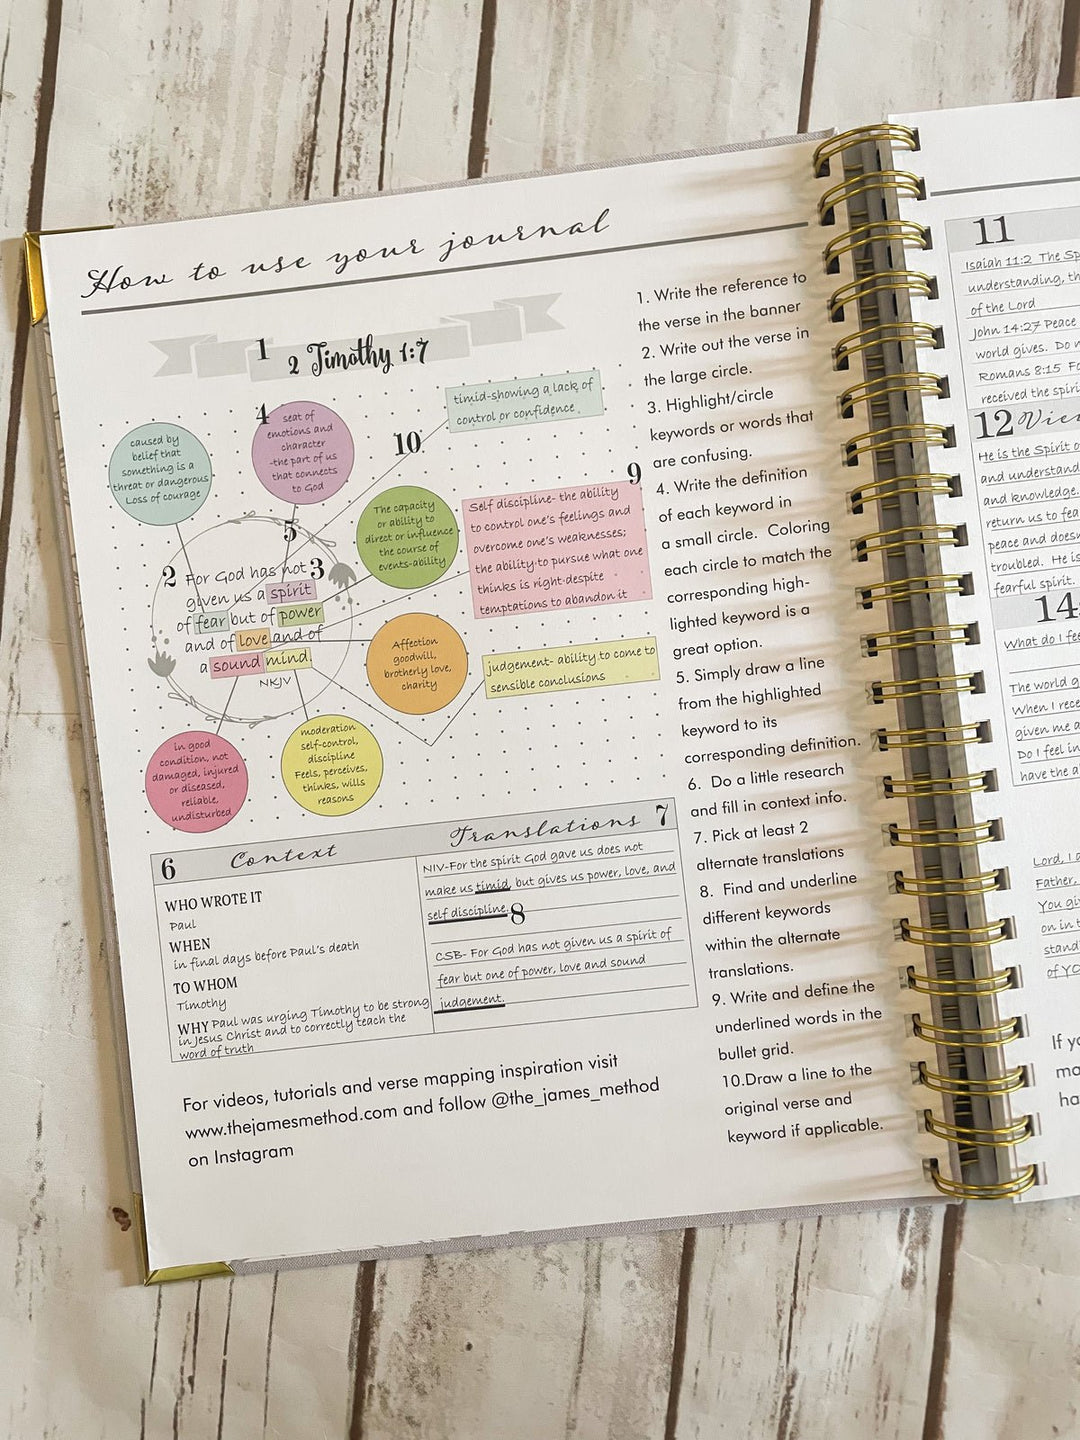 How to use your journal
1
2 Timothy 1:7
timid-showing a lack of
control or confidence
4
seat of
emotions and
character
-the part of us
that connects
to God
caused by
belief that
something is a
threat or dangerous
Loss of courage
10
The capacity
or ability to
direct or influence
the course of
events-ability
9
Self discipline- the ability
to control one's feelings and
overcome one's weaknesses;
the ability to pursue what one
thinks is right despite
temptations to abandon it
5
2
3
For God has not
given us a spirit
of fear but of power
and of love and of
a sound mind.
NKJV
Affection
goodwill,
brotherly love,
charity
judgement- ability to come to
sensible conclusions
in good
condition, not
damaged, injured
or diseased,
reliable,
undisturbed
moderation
self-control,
discipline
Feels, perceives,
thinks, wills
reasons
6 Context
WHO WROTE IT
Paul
WHEN
in final days before Paul's death
TO WHOM
Timothy
WHY Paul was urging Timothy to be strong
in Jesus Christ and to correctly teach the
word of truth
Translations 7
NIV-For the spirit God gave us does not
make us timid, but gives us power, love, and
self discipline. 8
CSB- For God has not given us a spirit of
fear but one of power, love and sound
judgement.
For videos, tutorials and verse mapping inspiration visit
www.thejamesmethod.com and follow @the_james_method
on Instagram
1. Write the reference to
the verse in the banner
2. Write out the verse in
the large circle.
3. Highlight/circle
keywords or words that
are confusing.
4. Write the definition
of each keyword in
a small circle. Coloring
each circle to match the
corresponding high-
lighted keyword is a
great option.
5. Simply draw a line
from the highlighted
keyword to its
corresponding definition.
6. Do a little research
and fill in context info.
7. Pick at least 2
alternate translations
8. Find and underline
different keywords
within the alternate
translations.
9. Write and define the
underlined words in the
bullet grid.
10.Draw a line to the
original verse and
keyword if applicable.
11
Isaiah 11:2 The
understanding,
of the Lord
John 14:27 Peace
world gives. Do
Romans 8:15
received the
12
He is the Spirit
and understand
and knowledge.
return us to
peace and
troubled. He
fearful spirit.
14
What do I
The world
When I
given me
Do I feel
have the
Lord, I
Father,
You
on in
stand
of
If